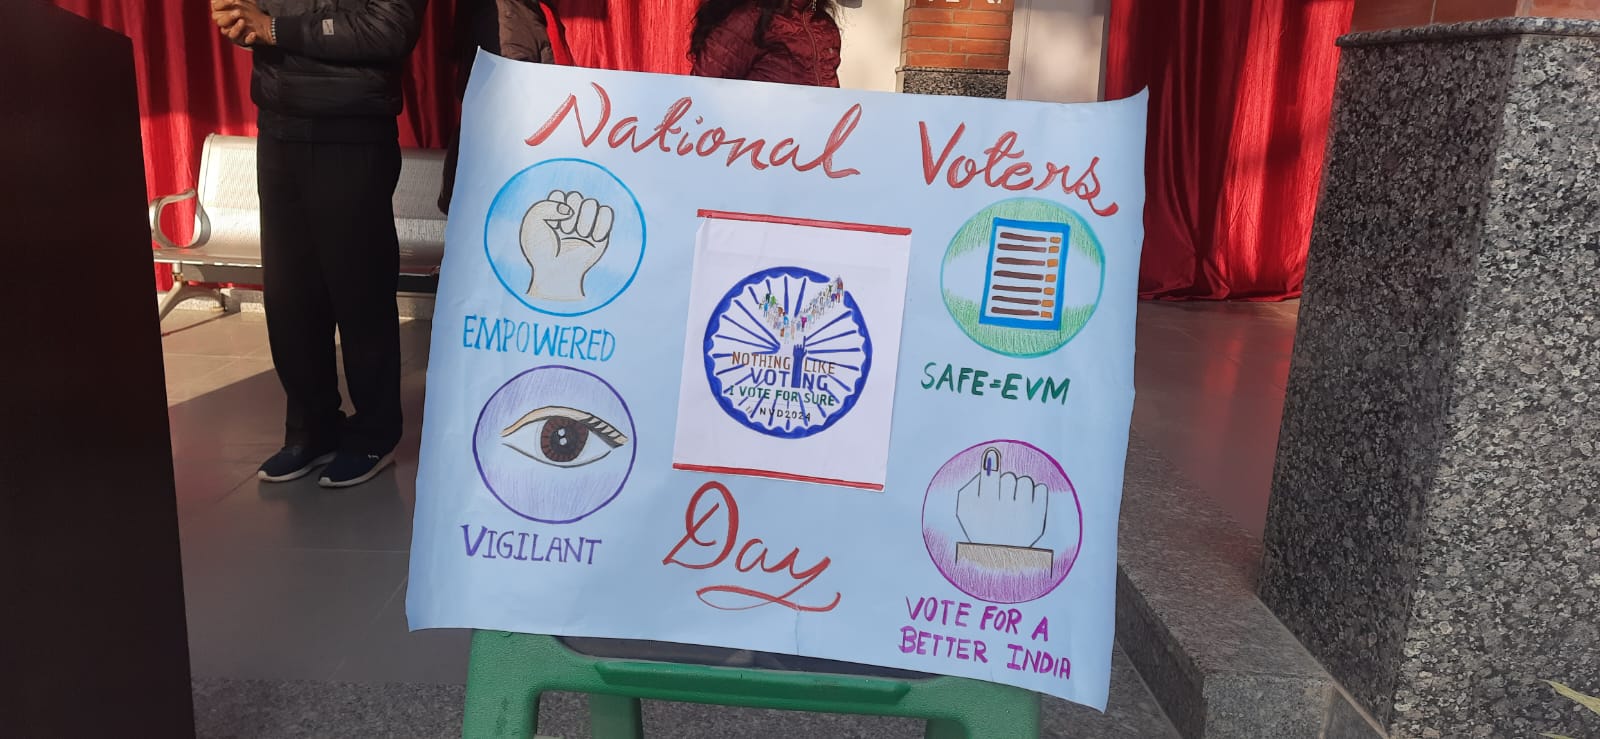 National Voters
EMPOWERED
SAFE=EVM
NOTHING LIKE
VOTING
I VOTE FOR SURE
NVD2024
VIGILANT
Day
VOTE FOR A
BETTER INDIA